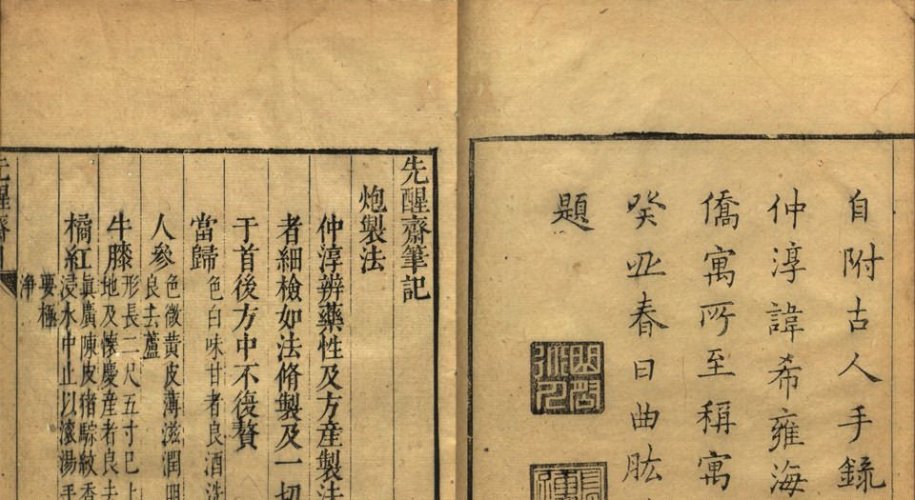 自附古人手錄
仲淳諱希雍海
僑寓所至稱寓
癸丑春日曲肱
題
先醒齋筆記
炮製法
仲淳辨藥性及方產製法
者細檢如法脩製及一切
于首後方中不復贅
當歸 色白味甘者良酒洗
人參 色微黃皮薄滋潤
良去蘆
牛膝 形長二尺五寸已上
地及懷慶產者良去
橘紅 真廣陳皮猪騌紋香
浸水中止以滾湯手
要極
淨
先醒齋